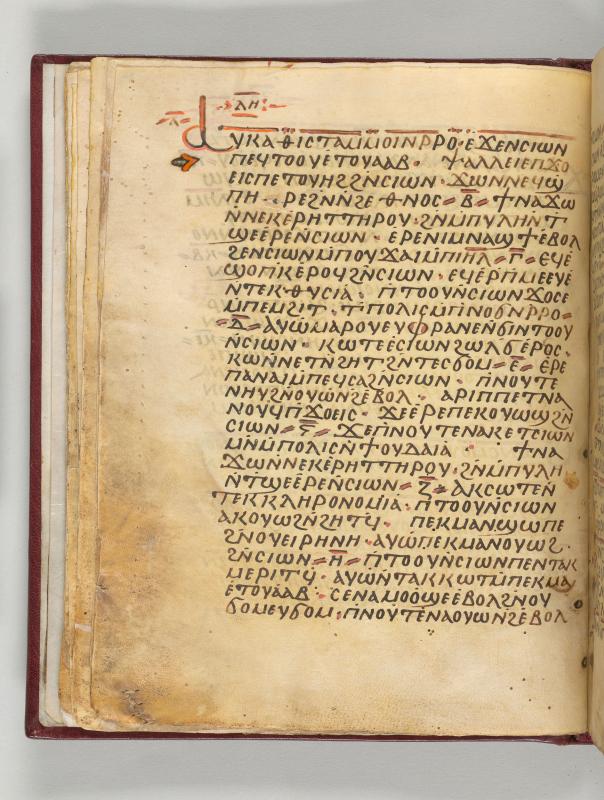 ⲗ̄ⲏ̄
ⲁⲩⲕⲁⲑⲓⲥⲧⲁⲙⲙⲟⲓⲛⲣⲣⲟ · ⲉϫⲉⲛⲥⲓⲱⲛ
ⲡⲉϥⲧⲟⲟⲩⲉⲧⲟⲩⲁⲁⲃ · ⲯⲁⲗⲗⲉⲓⲉⲡϫⲟ
ⲉⲓⲥⲡⲉⲧⲟⲩⲏϩϩⲛ̄ⲥⲓⲱⲛ · ϫⲱⲛⲛⲉϥϣ
ⲡⲏ · ⲣⲉϩⲛ̄ⲛ̄ϩⲉⲑⲛⲟⲥ = ⲃ̄ = ϯⲛⲁϫⲱ
ⲛ̄ⲛⲉⲕⲉⲣⲏⲧⲧⲏⲣⲟⲩ · ϩⲛ̄ⲙ̄ⲡⲩⲗⲏⲛ̄ⲧ
ϣⲉⲉⲣⲉⲛ̄ⲥⲓⲱⲛ · ⲉⲣⲉⲛⲓⲙⲛⲁϣϯⲉⲃⲟⲗ
ϩⲉⲛⲥⲓⲱⲛⲙ̄ⲡⲟⲩϫⲁⲓⲙ̄ⲡⲓⲏ̄ⲗ̄ = ⲅ̄ = ⲉϥⲉ
ϣⲟⲡⲕⲉⲣⲟϥϩⲛ̄ⲥⲓⲱⲛ · ⲉϥⲉⲣⲡⲙⲉⲉⲩⲉ
ⲛ̄ⲧⲉⲕⲑⲩⲥⲓⲁ · ⲡ̄ⲧⲟⲟⲩⲛ̄ⲥⲓⲱⲛϫⲟⲥⲉ
ⲙ̄ⲡⲉⲙϩⲓⲧ · ⲧⲡⲟⲗⲓⲥⲙ̄ⲡⲛⲟϭⲛ̄ⲣⲣⲟ =
= ⲇ̄ = ⲁⲩⲱⲙⲁⲣⲟⲩⲉⲩⲫⲣⲁⲛⲉⲛ̄ϭⲓⲛⲧⲟⲟⲩ
ⲛ̄ⲥⲓⲱⲛ · ⲕⲱⲧⲉⲉⲥⲓⲱⲛϩⲱⲗϭⲉⲣⲟⲥ ·
ⲕⲱⲛ̄ⲛⲉⲧⲛ̄ϩⲏⲧϩⲛ̄ⲧⲉⲥϭⲟⲙ = ⲉ̄ = ⲉⲣⲉ
ⲡⲁⲛⲁⲓⲙ̄ⲡⲉϥⲥⲁϩⲛ̄ⲥⲓⲱⲛ · ⲡⲛⲟⲩⲧⲉ
ⲛⲏⲩϩⲛⲟⲩⲱⲛϩⲉⲃⲟⲗ · ⲁⲣⲓⲡⲡⲉⲧⲛⲁ
ⲛⲟⲩϥⲡ̄ϫⲟⲉⲓⲥ · ϫⲉⲉⲣⲉⲡⲉⲕⲟⲩⲱϣϩⲛ̄
ⲥⲓⲱⲛ = ⲋ̄ = ϫⲉⲡⲛⲟⲩⲧⲉⲛⲁⲕⲉⲧⲥⲓⲱⲛ
ⲙⲛ̄ⲙ̄ⲡⲟⲗⲓⲥⲛ̄ϯⲟⲩⲇⲁⲓⲁ · ϯⲛⲁ
ϫⲱⲛⲛⲉⲕⲉⲣⲏⲧⲧⲏⲣⲟⲩ · ϩⲛ̄ⲙ̄ⲡⲩⲗⲏ
ⲛ̄ⲧϣⲉⲉⲣⲉⲛ̄ⲥⲓⲱⲛ = ⲍ̄ = ⲁⲕⲥⲱⲧⲉⲛ̄
ⲧⲉⲕⲕⲗⲏⲣⲟⲛⲟⲙⲓⲁ · ⲡ̄ⲧⲟⲟⲩⲛ̄ⲥⲓⲱⲛ
ⲁⲕⲟⲩⲱϩⲛ̄ϩⲏⲧϥ · ⲡⲉⲕⲙⲁⲛϣⲱⲡⲉ
ϩⲛⲟⲩⲉⲓⲣⲏⲛⲏ · ⲁⲩⲱⲡⲉⲕⲙⲁⲛⲟⲩⲱϩ ·
ϩⲛ̄ⲥⲓⲱⲛ = ⲏ̄ = ⲡ̄ⲧⲟⲟⲩⲛ̄ⲥⲓⲱⲛⲡⲉⲛⲧⲁⲕ
ⲙⲉⲣⲓⲧϥ · ⲁⲩⲱⲛ̄ⲧⲁⲕⲕⲱⲧⲙ̄ⲡⲉⲕⲙⲁ
ⲉⲧⲟⲩⲁⲁⲃ · ⲥⲉⲛⲁⲙⲟⲟϣⲉⲉⲃⲟⲗϩⲛⲟⲩ
ϭⲟⲙⲉⲩϭⲟⲙ · ⲡ̄ⲛⲟⲩⲧⲉⲛⲁⲟⲩⲱⲛϩⲉⲃⲟⲗ